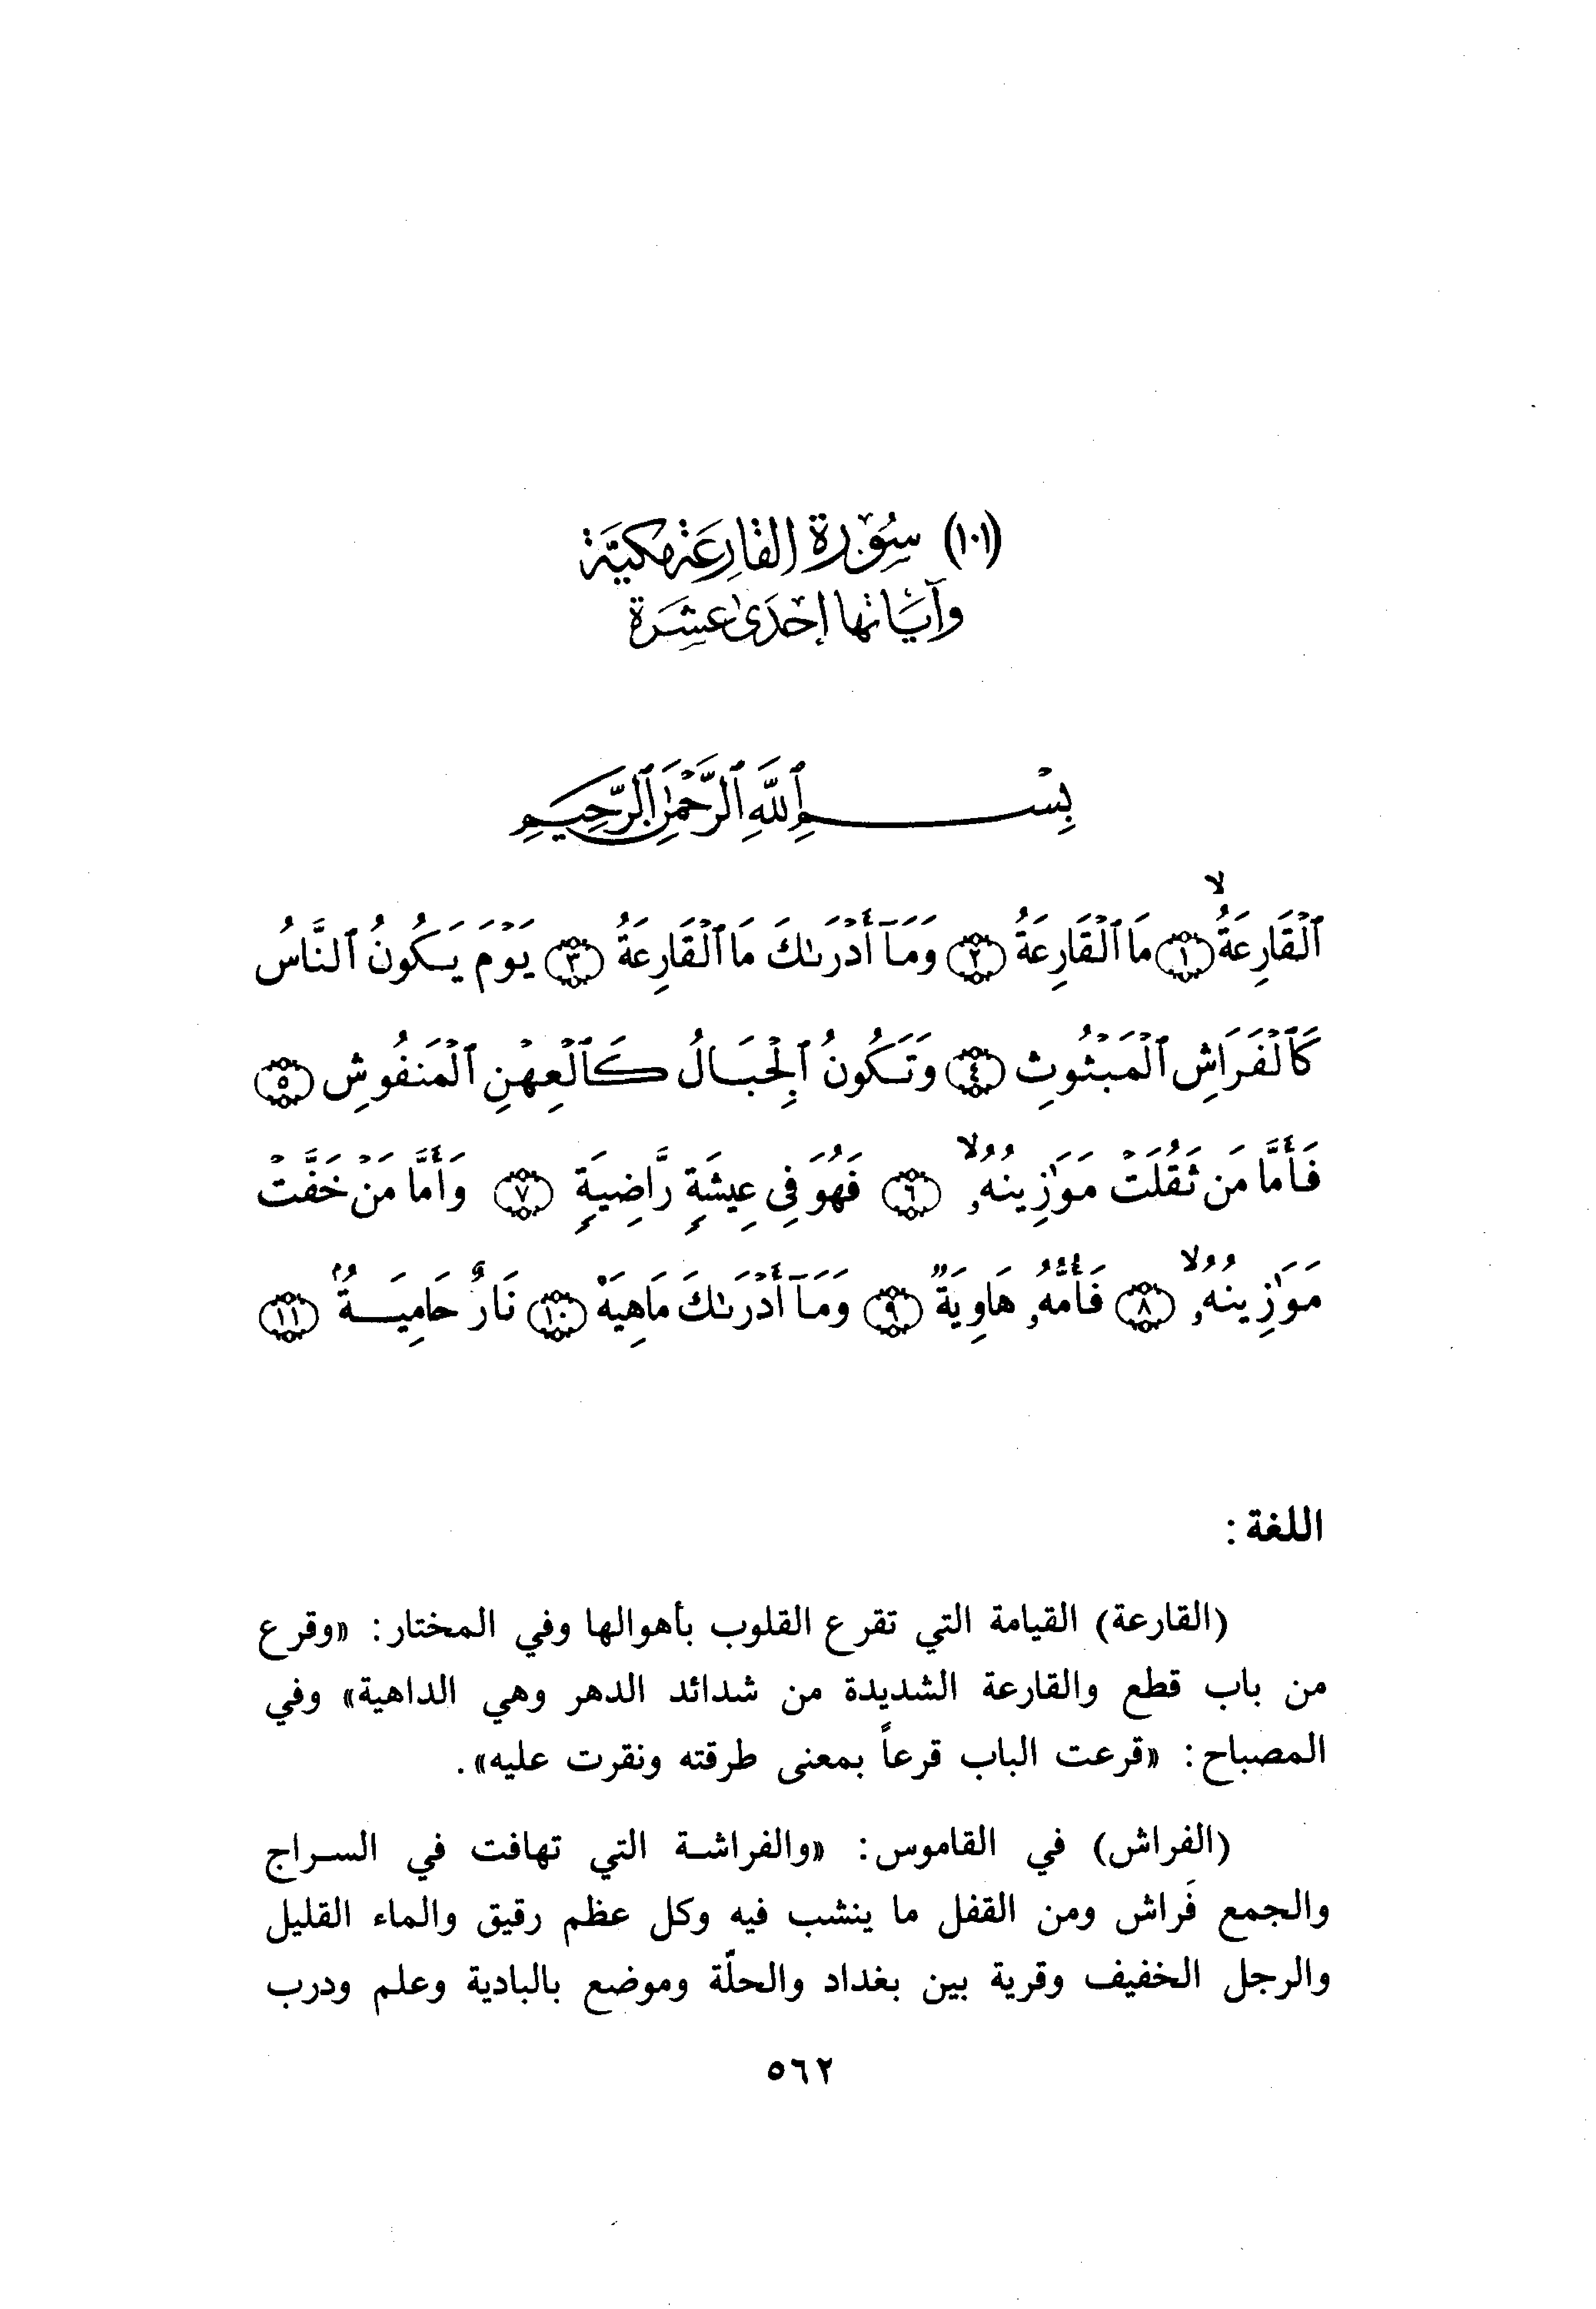 (١٠١) سُوْرَة القارِعَة مكيَّة
وآيَاتها إحْدَىٰ عَشِرَة
بِسْمِ ٱللَّهِ ٱلرَّحْمَٰنِ ٱلرَّحِيمِ
ٱلْقَارِعَةُ ۙ ﴿١﴾ مَا ٱلْقَارِعَةُ ﴿٢﴾ وَمَآ أَدْرَىٰكَ مَا ٱلْقَارِعَةُ ﴿٣﴾ يَوْمَ يَكُونُ ٱلنَّاسُ
كَٱلْفَرَاشِ ٱلْمَبْثُوثِ ﴿٤﴾ وَتَكُونُ ٱلْجِبَالُ كَٱلْعِهْنِ ٱلْمَنفُوشِ ﴿٥﴾
فَأَمَّا مَن ثَقُلَتْ مَوَٰزِينُهُۥ ۙ ﴿٦﴾ فَهُوَ فِى عِيشَةٍ رَّاضِيَةٍ ﴿٧﴾ وَأَمَّا مَنْ خَفَّتْ
مَوَٰزِينُهُۥ ۙ ﴿٨﴾ فَأُمُّهُۥ هَاوِيَةٌ ﴿٩﴾ وَمَآ أَدْرَىٰكَ مَاهِيَهْ ﴿١٠﴾ نَارٌ حَامِيَةٌۢ ﴿١١﴾
اللغة :
(القارعة) القيامة التي تقرع القلوب بأهوالها وفي المختار: «وقرع
من باب قطع والقارعة الشديدة من شدائد الدهر وهي الداهية» وفي
المصباح: «قرعت الباب قرعاً بمعنى طرقته ونقرت عليه».
(الفراش) في القاموس: «والفراشة التي تهافت في السراج
والجمع فَراش ومن القفل ما ينشب فيه وكل عظم رقيق والماء القليل
والرجل الخفيف وقرية بين بغداد والحلّة وموضع بالبادية وعلم ودرب
٥٦٢